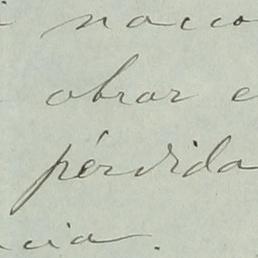 nacio
obrar e
pérdida
cia.